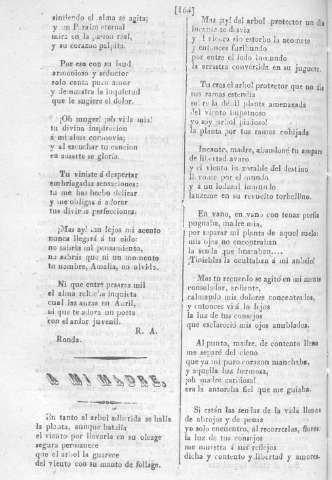 (164)
sintiendo el alma se agita;
y un Paraiso eternal
mira en la pasion real,
y su corazon palpita.
Por eso con su laud
armonioso y seductor
solo canta puro amor
y demuestra la inquietud
que le sugiere el dolor.
¡Oh muger! ¡oh vida mia!
tu divina inspiracion
mi alma conmovia;
y al escuchar tu cancion
en amarte se gloria.
Tu viniste á despertar
embriagadas sensaciones:
tu me has hecho delirar
y me obligas á adorar
tus divinas perfecciones:
¡Mas ay! tan lejos mi acento
nunca llegará á tu oido:
no sabrás mi pensamiento,
no sabrás que ni un momento
tu nombre, Amalia, no olvida.
Ni que entre pesares mil
el alma inquieta
cual las auras en Abril,
ni que te adora un poeta
con el ardor juvenil.
R. A.
Ronda.
A MI MADRE.
En tanto al arbol adherida se halla
la planta, aunque batalla
el viento por llevarla en su oleage
segura permanece
que el arbol la guarece
del viento con su manto de follage.
Mas ¡ay! del arbol protector un dia
incauta se desvia
y el viento sin estorbo la acomete
y entonces furibundo
por entre el lodo inmundo
la arrastra convertida en su juguete.
Tu eres el arbol protector que no
sus ramas estendia
sobre la débil planta amenazada
del viento impetuoso
yo soy arbol piadoso!
la planta por tus ramas cobijada
Incauto, madre, abandoné tu amparo
de libertad avaro
y el viento inexorable del destino
por el mundo
y á un lodazal inmundo
lanzóme en su revuelto torbellino.
En vano, en vano con tenaz porfia
pugnaba, madre mia,
por separar mi planta de aquel suelo:
mis ojos no encontraban
la senda que buscaban....
¡Tinieblas la ocultaban á mi anhelo!
Mas tu recuerdo se agitó en mi mente
consolador, ardiente,
calmando mis dolores concentrados,
y entonces vi á lo lejos
la luz de tus consejos
que esclareció mis ojos anublados.
Al punto, madre, de contento lleno
me separé del cieno
que ya mi puro corazon manchaba,
y aquella luz hermosa,
¡oh madre cariñosa!
era la antorcha fiel que me guiaba.
Si están las sendas de la vida llenas
de abrojos y de penas
yo solo encuentro, al recorrerlas, flores
la luz de tus consejos
me muestra á sus reflejos
dicha y contento y libertad y amores.